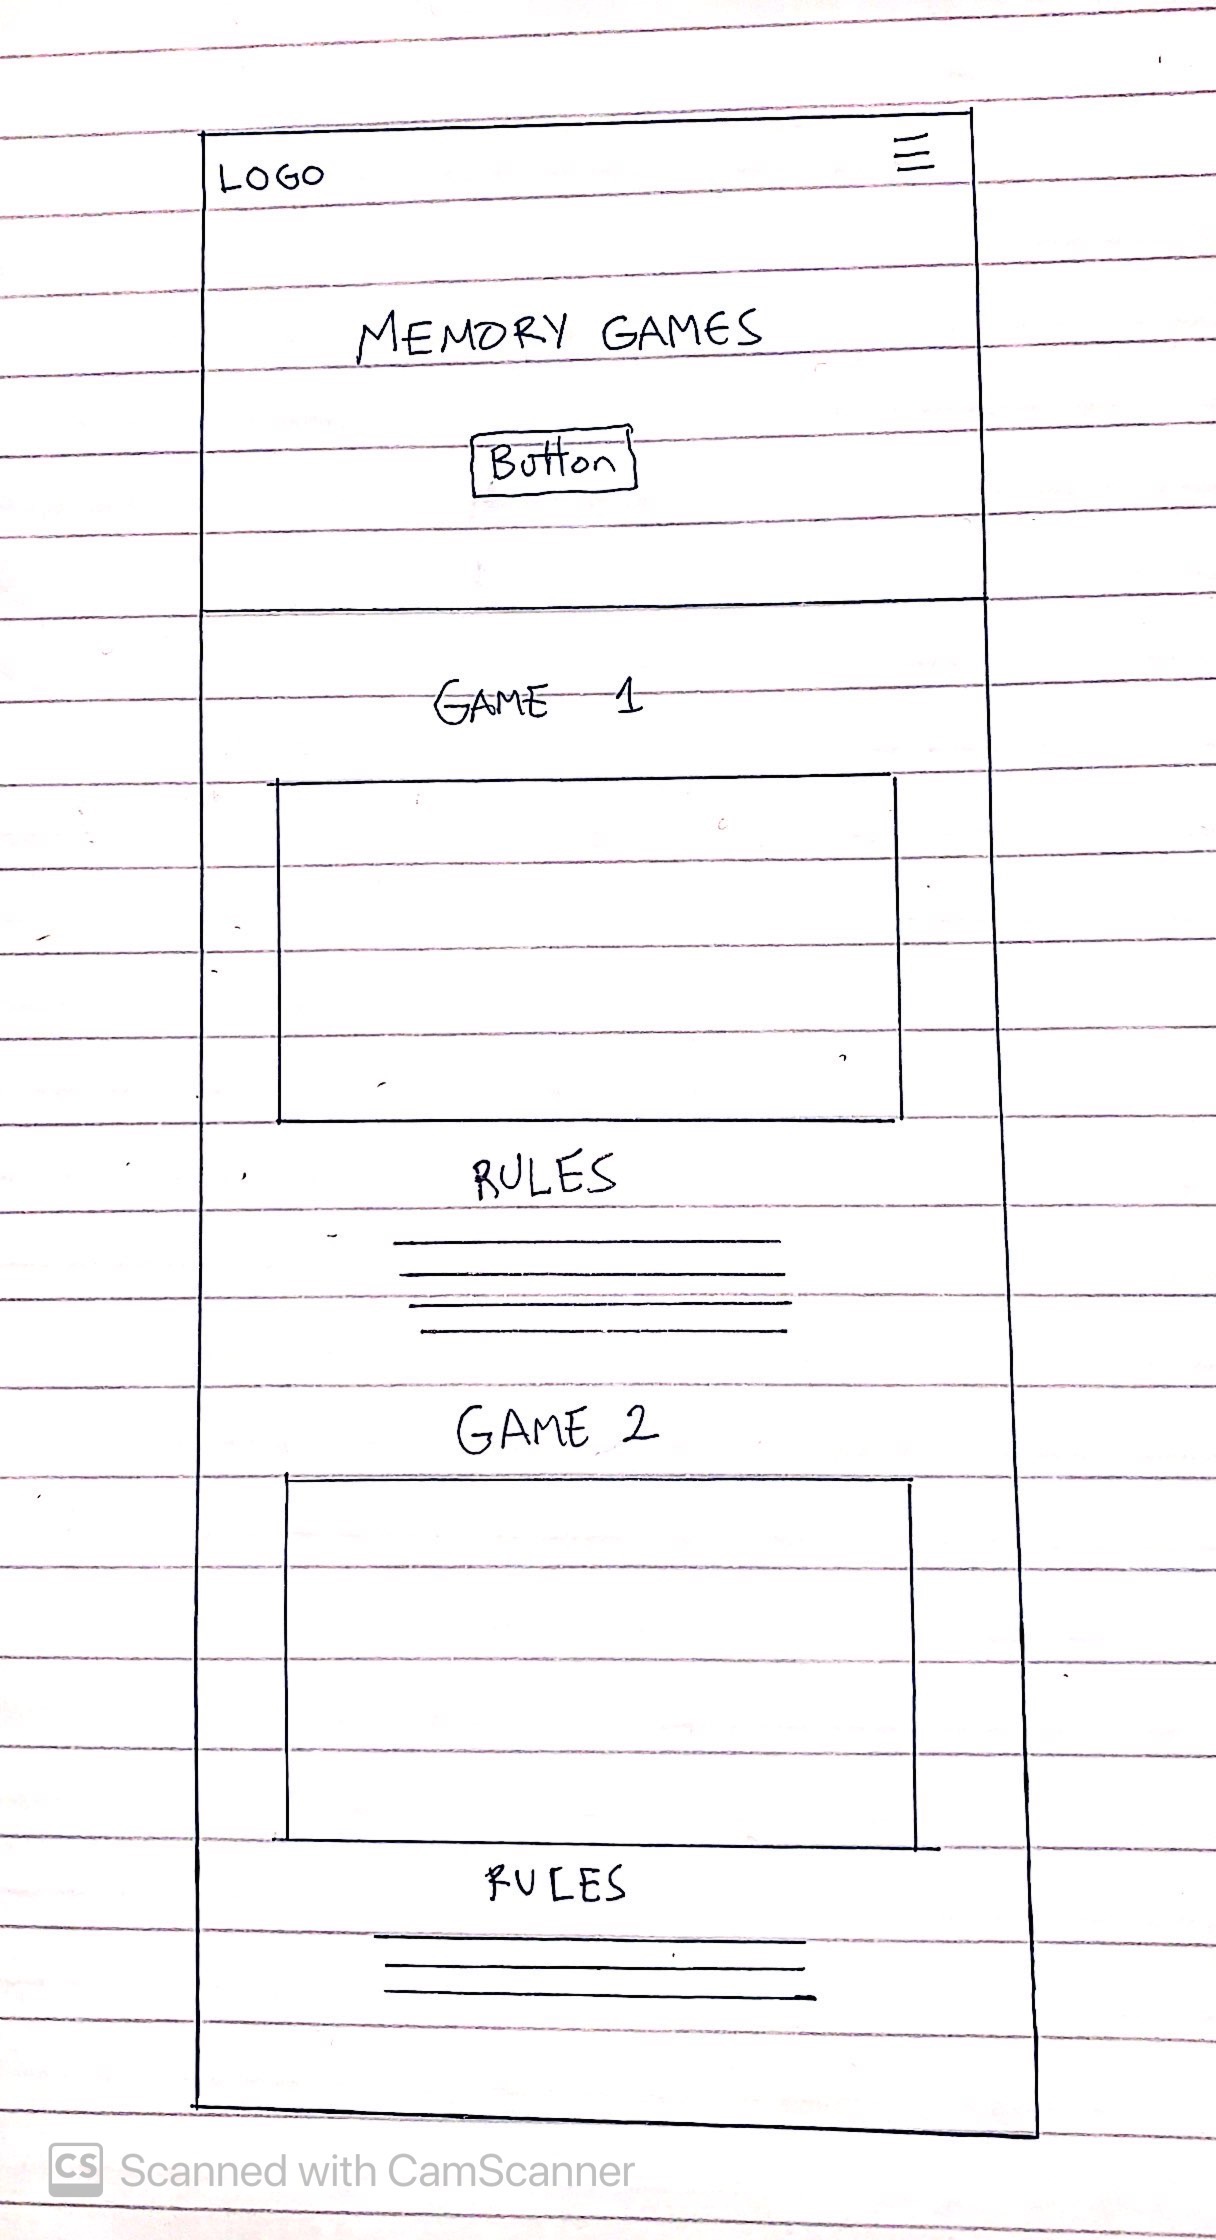 LOGO
MEMORY GAMES
Button
GAME 1
RULES
GAME 2
RULES
CS Scanned with CamScanner